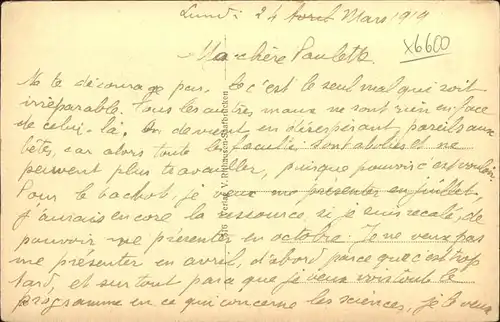 Lundi 24 Mars 1919
Ma chère Paulette
X6600
Ne te décourage pas. C'est le seul mal qui soit
irréparable. Tous les autres maux ne sont rien en face
de celui-là. On devient, en désespérant, pareils aux
bêtes, car alors toute les facultés sont abolies et ne
peuvent plus travailler, puisque pouvoir c'est vouloir
Pour le bachot, je veux me présenter en juillet,
j'aurais encore la ressource, si je suis recalé, de
pouvoir me présenter en octobre. Je ne veux pas
me présenter en avril, d'abord parce que c'est trop
tard, et surtout parce que je veux voir toute le
programme en ce qui concerne les sciences. Je le veux